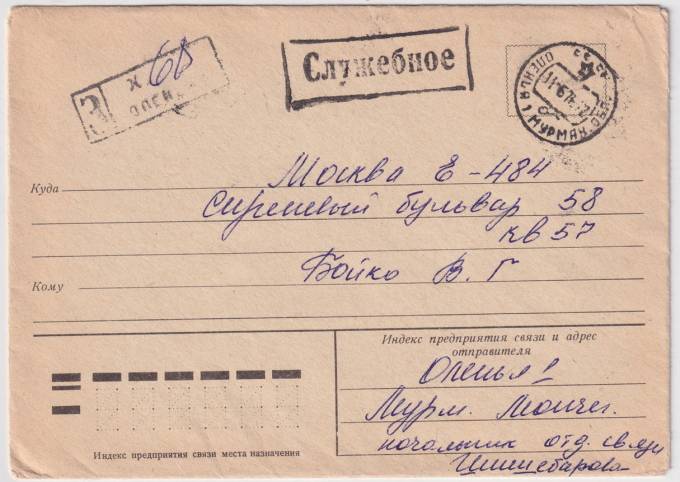 З
Ж 68
ОЛЕН
Служебное
СССР ОЛЕНЬЯ 1 МУРМАН. ОБ.
Куда Москва Е-484
Сиреневый бульвар 58
кв 57
Кому Бойко В. Г
Индекс предприятия связи и адрес
отправителя
Оленья 1
Мурм. Монче.
начальник отд. связи
Индекс предприятия связи места назначения